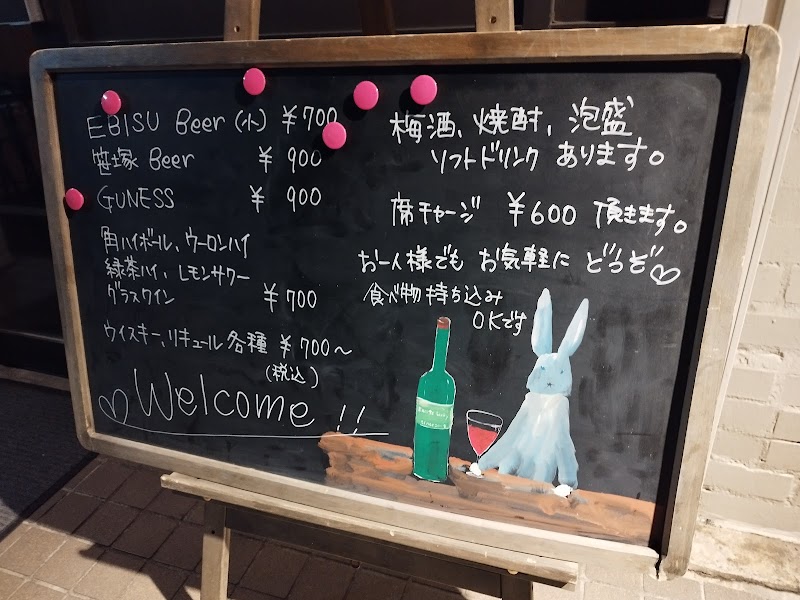 EBISU Beer (小) ¥700
笹塚 Beer ¥900
GUNESS ¥ 900
角ハイボール、ウーロンハイ
緑茶ハイ、レモンサワー
グラスワイン ¥700
ウイスキー、リキュール各種 ¥700〜
(税込)
Welcome !!
梅酒、焼酎、泡盛
ソフトドリンク あります。
席チャージ ¥600 頂きます。
お一人様でも お気軽に どうぞ♡
食べ物持ち込み
OKです